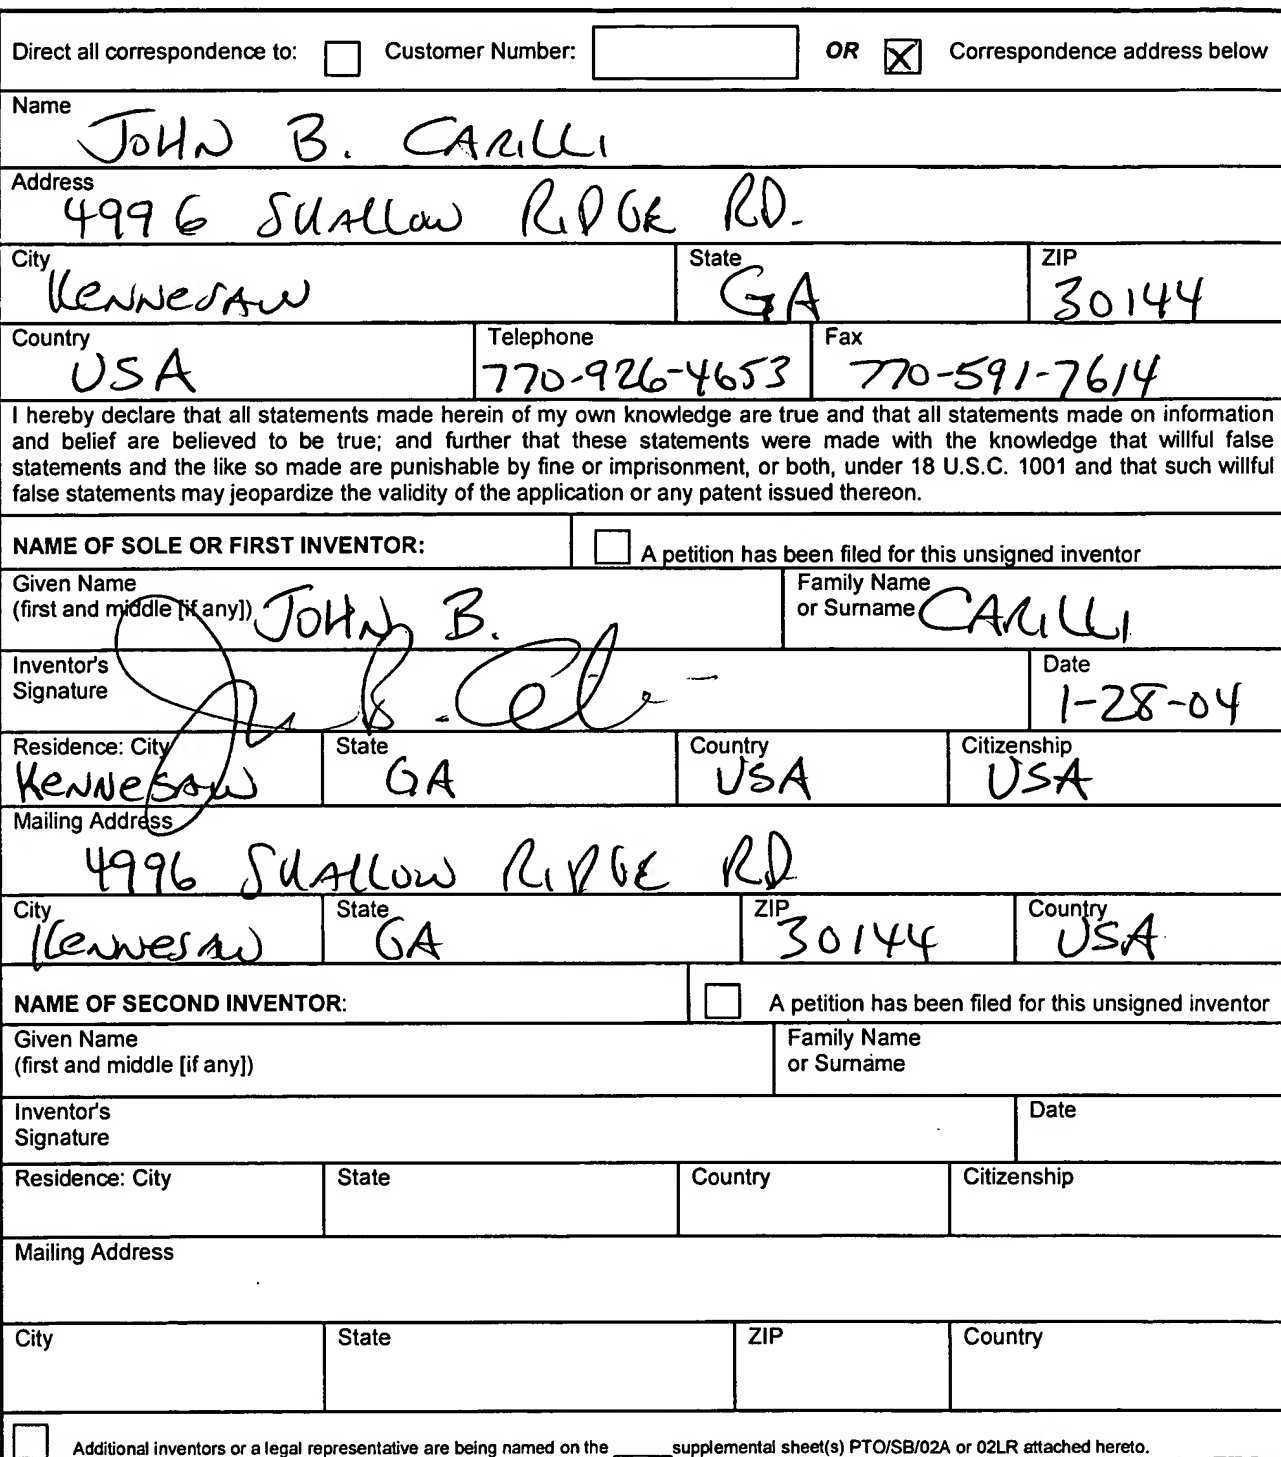 Direct all correspondence to: Customer Number: OR Correspondence address below
Name
JOHN B. CARILLI
Address
4996 SHALLOW RIDGE RD.
City State ZIP
KENNESAW GA 30144
Country Telephone Fax
USA 770-926-4653 770-591-7614
I hereby declare that all statements made herein of my own knowledge are true and that all statements made on information
and belief are believed to be true; and further that these statements were made with the knowledge that willful false
statements and the like so made are punishable by fine or imprisonment, or both, under 18 U.S.C. 1001 and that such willful
false statements may jeopardize the validity of the application or any patent issued thereon.
NAME OF SOLE OR FIRST INVENTOR: A petition has been filed for this unsigned inventor
Given Name Family Name
(first and middle [if any]) JOHN B. or Surname CARILLI
Inventor's Date
Signature 1-28-04
Residence: City State Country Citizenship
KENNESAW GA USA USA
Mailing Address
4996 SHALLOW RIDGE RD
City State ZIP Country
KENNESAW GA 30144 USA
NAME OF SECOND INVENTOR: A petition has been filed for this unsigned inventor
Given Name Family Name
(first and middle [if any]) or Surname
Inventor's Date
Signature
Residence: City State Country Citizenship
Mailing Address
City State ZIP Country
Additional inventors or a legal representative are being named on the _____ supplemental sheet(s) PTO/SB/02A or 02LR attached hereto.